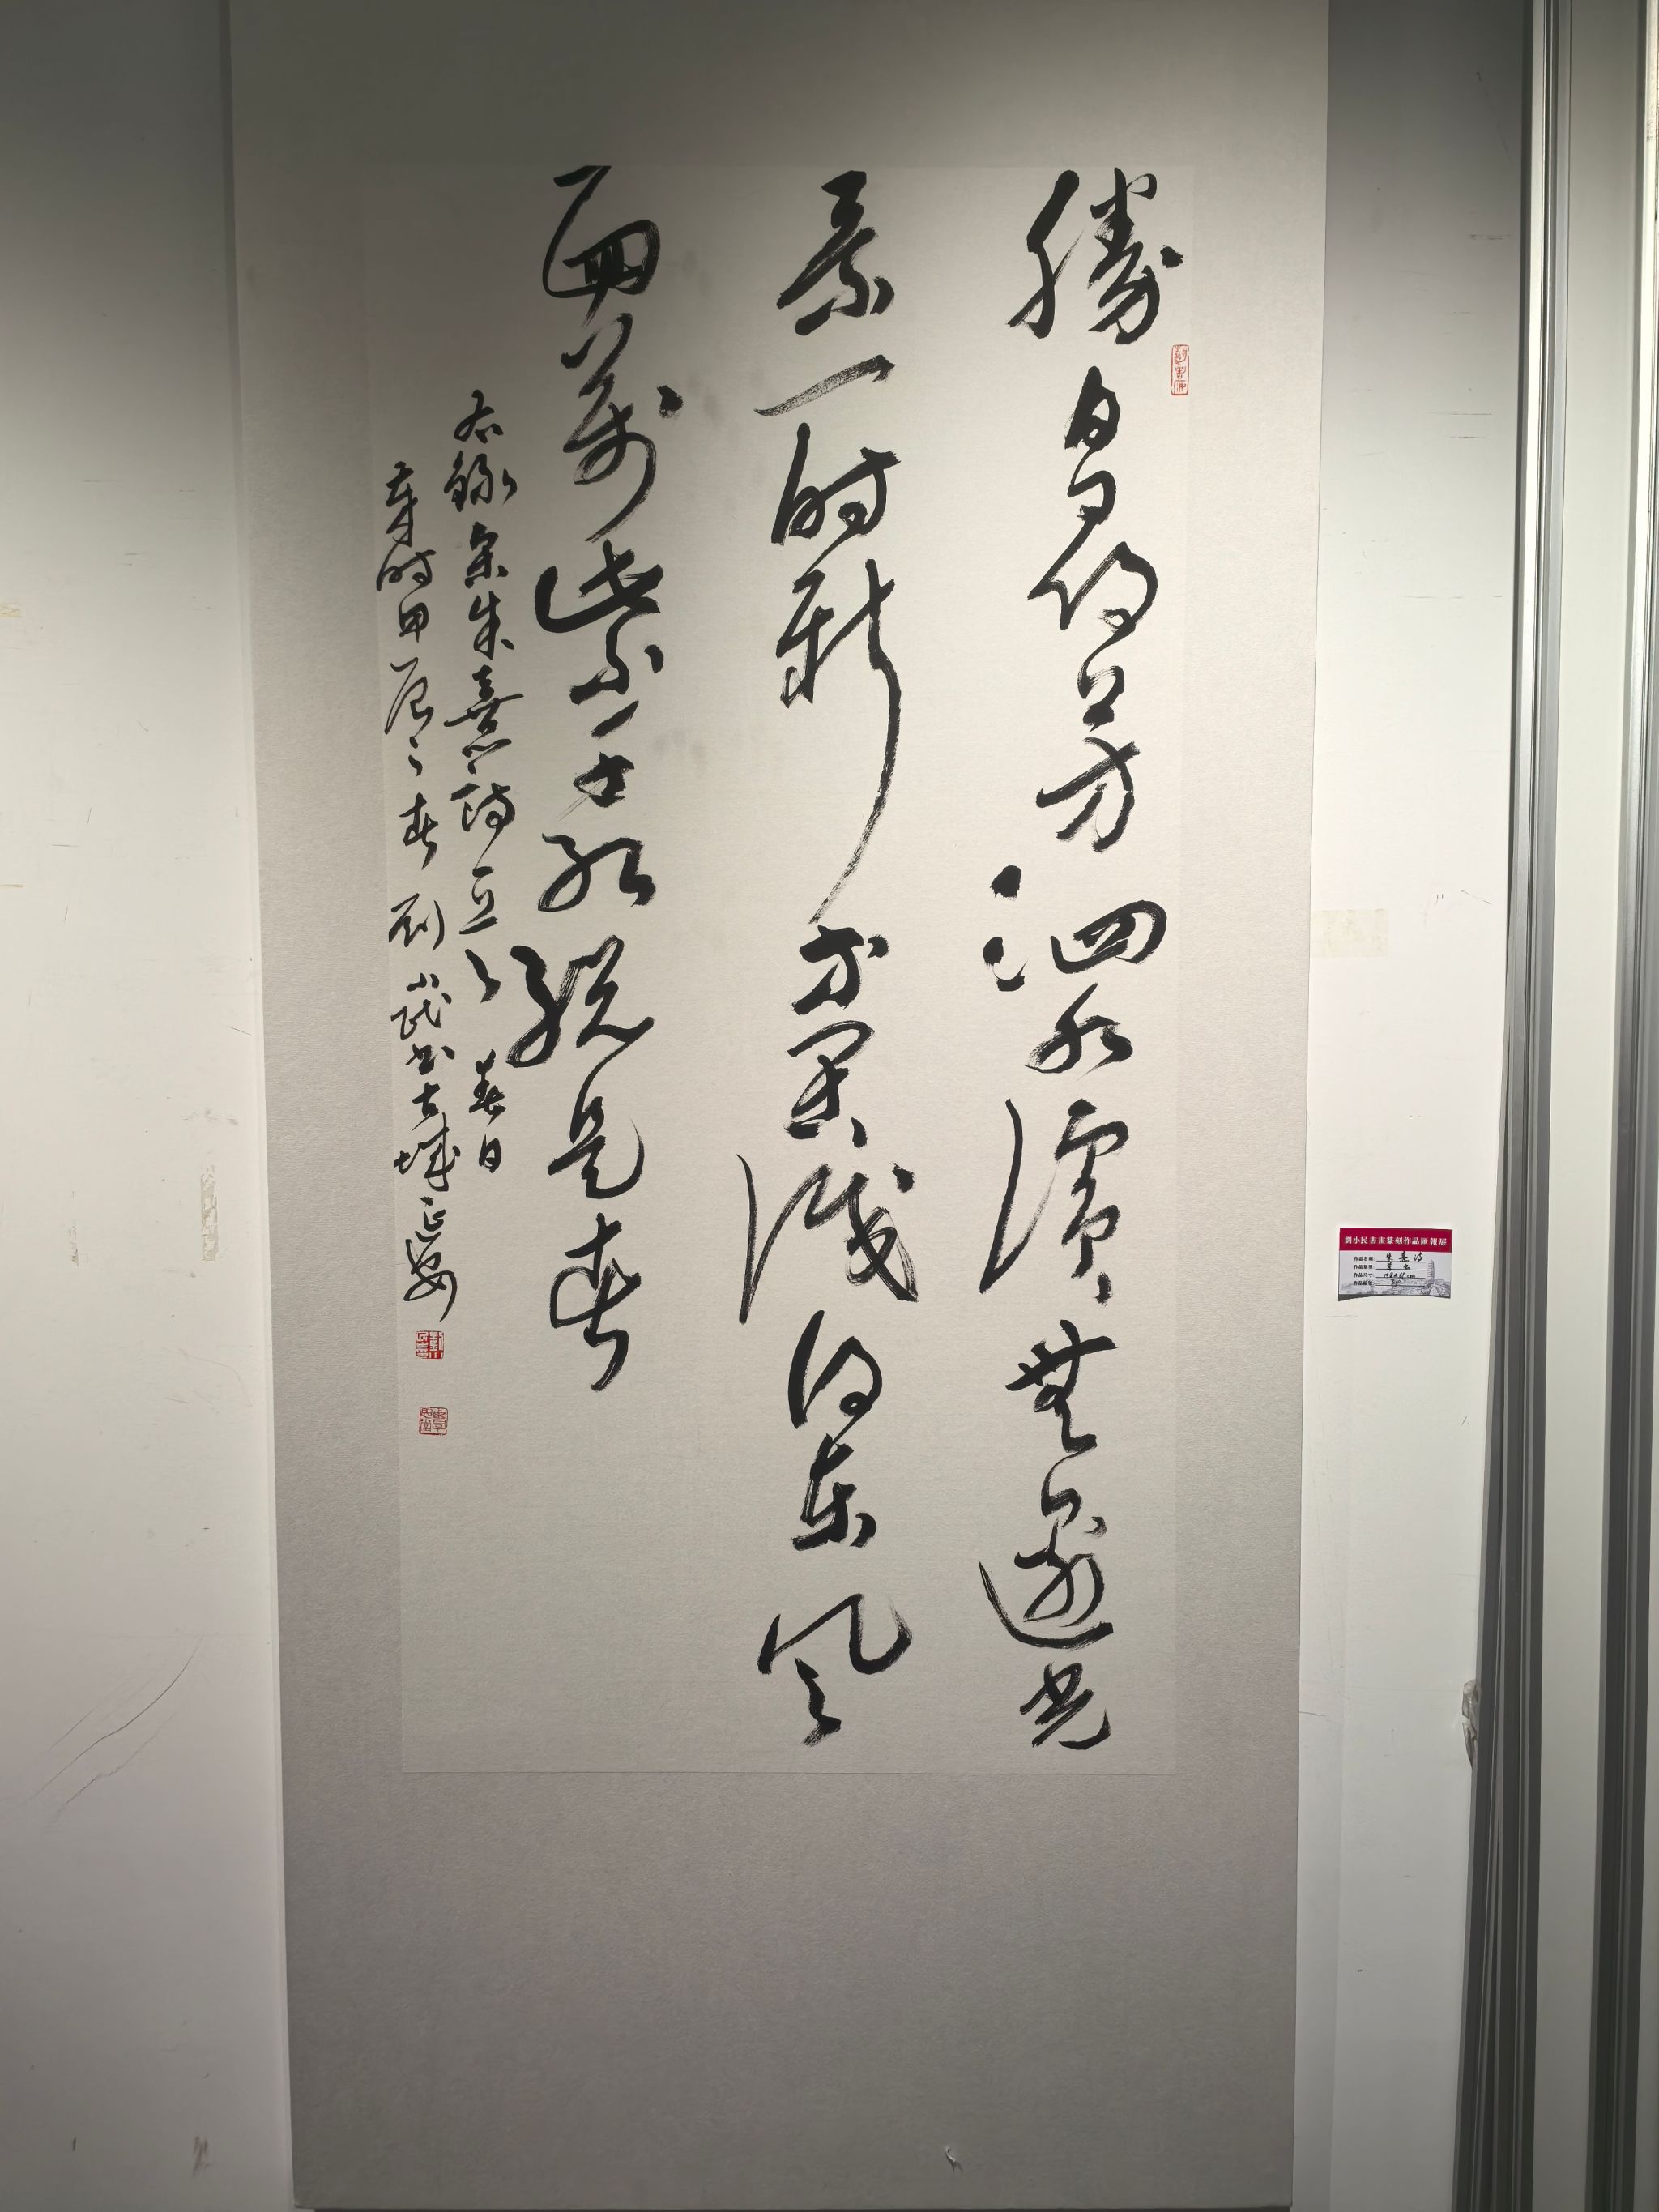 勝日尋芳泗水濱無邊光
景一時新等閒識得東風
面萬紫千紅總是春
右錄宋朱熹詩一首 春日
歲時甲辰之春 劉小民書古城延安
劉小民書畫篆刻作品匯報展
作品名稱: 朱熹詩
作品類型: 草書
作品尺寸: